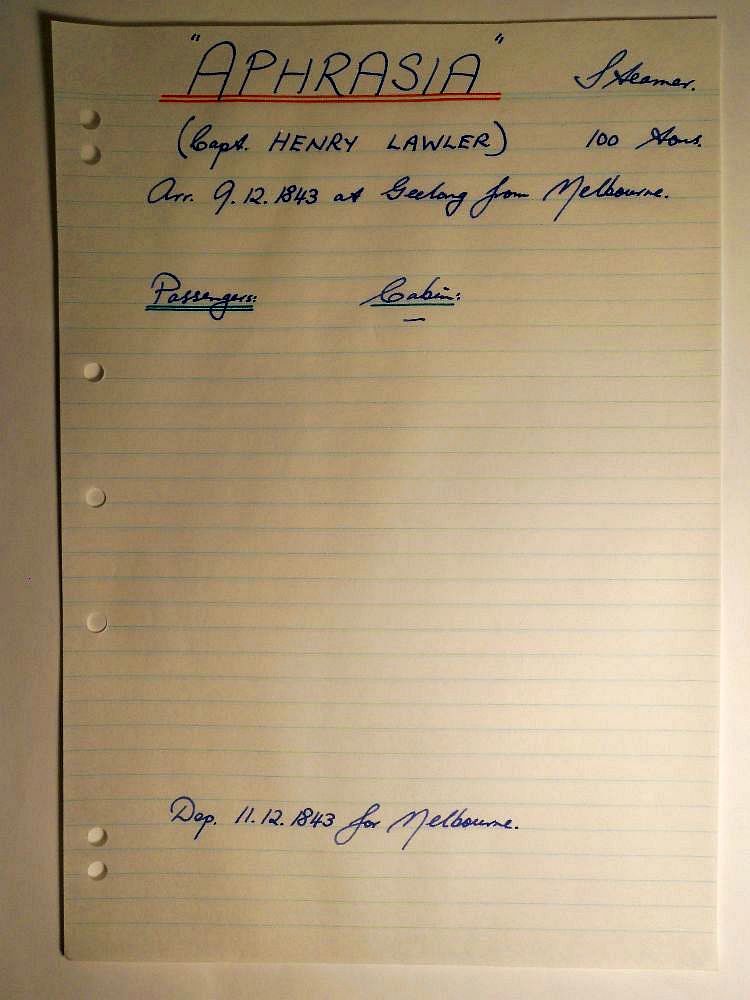 "APHRASIA" Steamer.
(Capt. HENRY LAWLER) 100 tons.
Arr. 9.12.1843 at Geelong from Melbourne.
Passengers: Cabin:
—
Dep. 11.12.1843 for Melbourne.